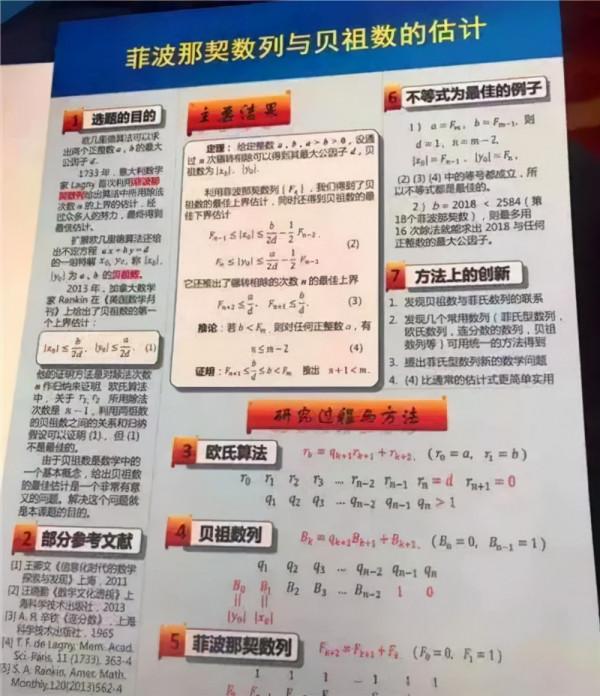 菲波那契数列与贝祖数的估计
1 选题的目的
欧几里德算法可以求
出两个正整数 a, b 的最大
公因子 d.
1733 年, 意大利数学
家 Lagny 首次利用菲波那
契数列给出算法中所用除法
次数 n 的上界的估计, 经
过众多人的努力, 最终得到
最优估计.
扩展欧几里德算法还给
出不定方程 ax + by = d
的一组特解 x₀, y₀, 称 |x₀|,
|y₀| 为 a, b 的贝祖数.
2013 年, 加拿大数学
家 Rankin 在《美国数学月
刊》上给出了贝祖数的第一
个上界估计:
|x₀| ≤ b/2d, |y₀| ≤ a/2d. (1)
他的证明方法是对除法次数
n 作归纳来证明. 欧氏算法
中, 关于 r₁, r₂ 所用除法
次数是 n − 1, 利用两组数
的贝祖数之间的关系和归纳
假设可以证明 (1), 但 (1)
不是最佳的.
由于贝祖数是数学中的
一个基本概念, 给出贝祖数
的最佳估计是一个非常有意
义的问题. 解决这个问题就
是本课题的目的.
2 部分参考文献
[1] 王卿文《信息化时代的数学
探索与发现》上海, 2011
[2] 汪晓勤《数学文化透视》上
海科学技术出版社, 2013
[3] A. Я. 辛钦《连分数》, 上海
科学技术出版社, 1965
[4] T. F. de Lagny, Mem. Acad.
Sci. Paris, 11 (1733), 363-4
[5] S. A. Rankin, Amer. Math.
Monthly.120(2013)562-4
主要结果
定理: 给定整数 a, b, a > b > 0, 设通
过 n 次辗转相除可以得到其最大公因子 d, 贝
祖数为 |x₀|, |y₀|.
利用菲波那契数列 {Fₖ}, 我们得到了贝
祖数的最佳上界估计, 同时还得到贝祖数的最
佳下界估计
Fₙ₋₁ ≤ |x₀| ≤ b/2d − 1/2 Fₙ₋₂,
(2)
Fₙ ≤ |y₀| ≤ a/2d − 1/2 Fₙ₋₁
它还推出了辗转相除的次数 n 的最佳上界
Fₙ₊₂ ≤ a/d, Fₙ₊₁ ≤ b/d. (3)
推论: 若 b < Fₘ, 则对任何正整数 a, 有
n ≤ m − 2 (4)
证明: Fₙ₊₁ ≤ b/d ≤ b < Fₘ 推出 n + 1 < m.
6 不等式为最佳的例子
1 ) a = Fₘ, b = Fₘ₋₁, 则
d = 1, n = m − 2,
|x₀| = Fₙ₋₁, |y₀| = Fₙ,
(2) (3) (4) 中的等号都成立, 所
以不等式都是最佳的.
2 ) b = 2018 < 2584 (第
18个菲波那契数), 则最多用
16 次除法就能求出 2018 与任何
正整数的最大公因子.
7 方法上的创新
1. 发现贝祖数与菲氏数列的联系
2. 发现几个常用数列 ( 菲氏型数列,
欧氏数列, 连分数的数列, 贝祖
数列等 ) 可用统一的方法得到
3. 提出菲氏型数列新的数学问题
4. (4) 比通常的估计式更简单实用
研究过程与方法
3 欧氏算法 rₖ = qₖ₊₁rₖ₊₁ + rₖ₊₂, (r₀ = a, r₁ = b)
r₀ r₁ r₂ r₃ ... rₙ₋₂ rₙ₋₁ rₙ = d rₙ₊₁ = 0
q₁ q₂ q₃ ... qₙ₋₂ qₙ₋₁ qₙ > 1
4 贝祖数列 Bₖ = qₖ₊₂Bₖ₊₁ + Bₖ₊₂, (Bₙ = 0, Bₙ₋₁ = 1)
q₁ q₂ q₃ ... qₙ₋₂ qₙ₋₁ qₙ
B₀ B₁ B₂ B₃ ... Bₙ₋₂ 1 0
|| ||
|y₀| |x₀|
5 菲波那契数列 Fₖ₊₂ = Fₖ₊₁ + Fₖ, (F₀ = 0, F₁ = 1)
1 1 1 ... 1 1 1